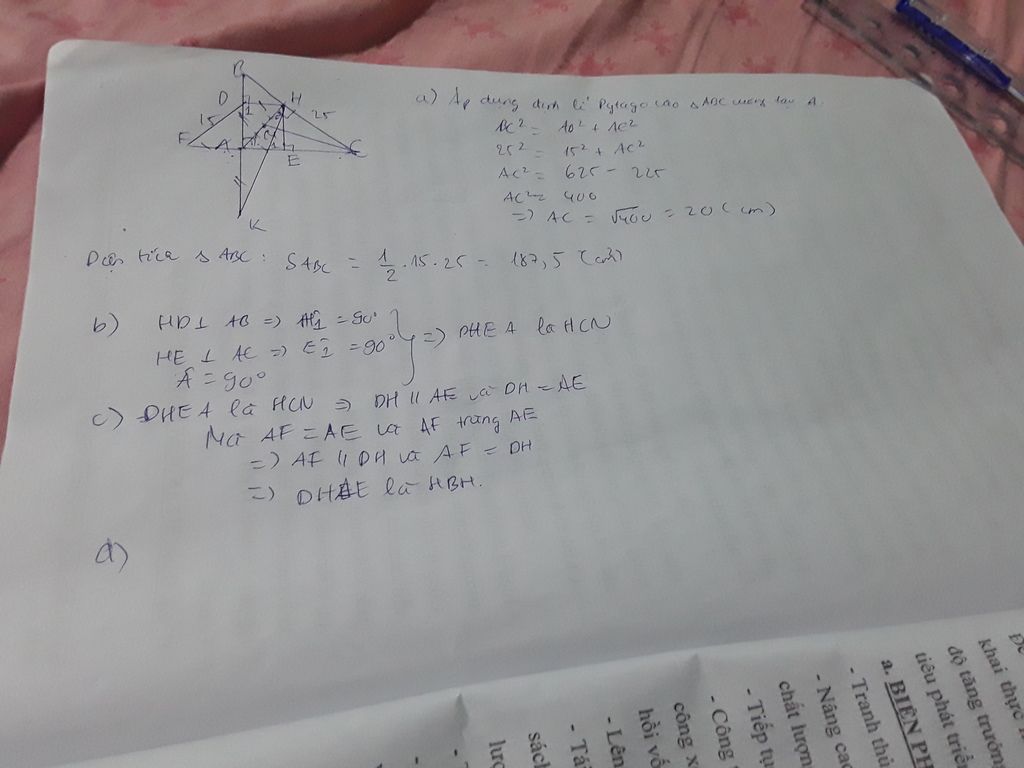 B
D H
15 25
F A E C
K
a) Áp dụng định lí Pytago vào △ABC vuông tại A.
BC² = AB² + AC²
25² = 15² + AC²
AC² = 625 - 225
AC² = 400
=> AC = √400 = 20 (cm)
Diện tích △ ABC: S ABC = 1/2 . 15 . 25 = 187,5 (cm²)
b) HD ⊥ AB => Ĥ1 = 90°
HE ⊥ AC => Ê1 = 90°
Â = 90°
} => DHEA là HCN
c) DHEA là HCN => DH // AE và DH = AE
Mà AF = AE và AF trùng AE
=> AF // DH và AF = DH
=> DHAE là HBH.
d)
khai thác
độ tăng trưởng
tiêu phát triển
a. BIỆN PH
- Tranh thủ
- Nâng cao
chất lượn
- Tiếp tụ
- Công
công x
hồi vố
- Lên
- Tă
sách
lượ